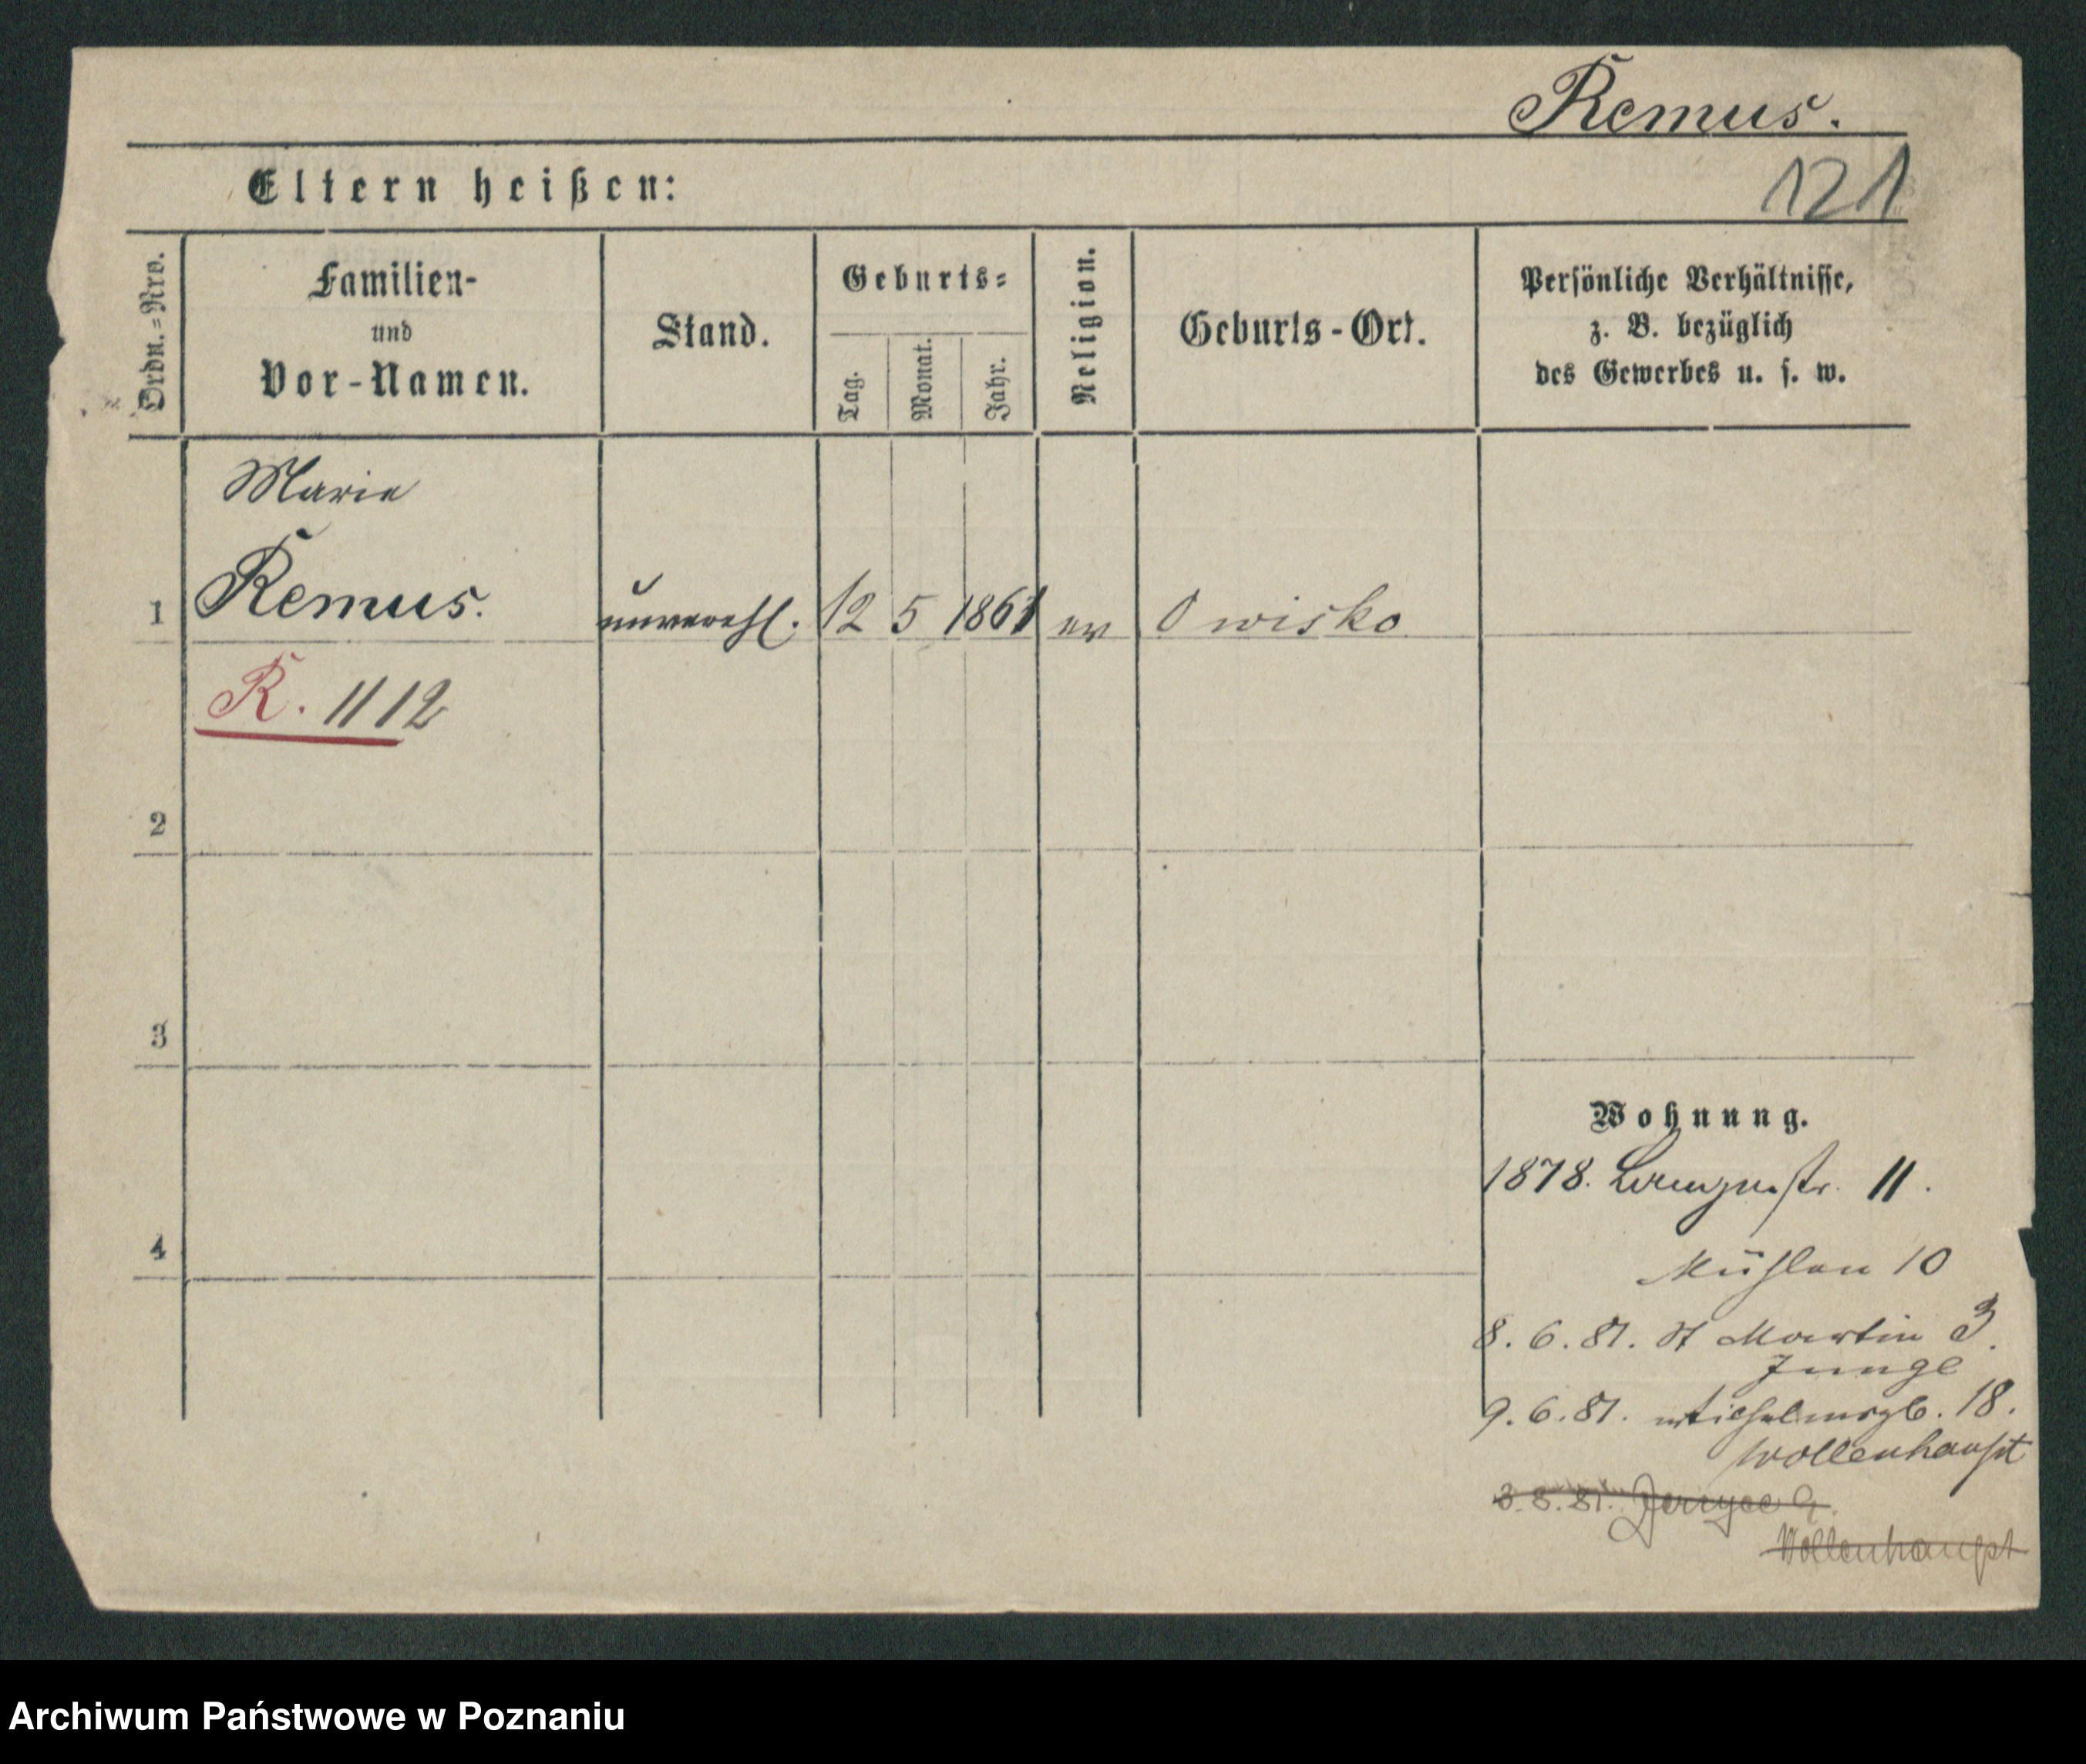 Remus.
Eltern heißen:
121
Ordn.=Nro.
Familien-
und
Vor-Namen.
Stand.
Geburts=
Tag.
Monat.
Jahr.
Religion.
Geburts-Ort.
Persönliche Verhältnisse,
z. B. bezüglich
des Gewerbes u. s. w.
Marie
1 Remus. unverehl. 12 5 1861 ev Owisko
R. 1112
2
3
Wohnung.
1878. 11.
4
Mühlen 10
8. 6. 81. St Martin 3.
Junge
9. 6. 81. 18.
Wollenhaupt
3. 8. 81. 9.
Wollenhaupt
Archiwum Państwowe w Poznaniu